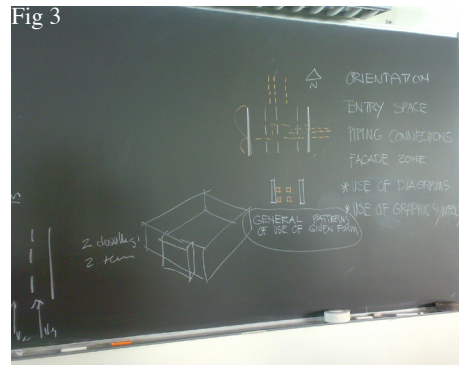 Fig 3
N
ORIENTATION
ENTRY SPACE
PIPING CONNECTIONS
FACADE ZONE
* USE OF DIAGRAMS
* USE OF GRAPHICS
GENERAL PATTERNS
OF USE OF GIVEN FORM
2
2